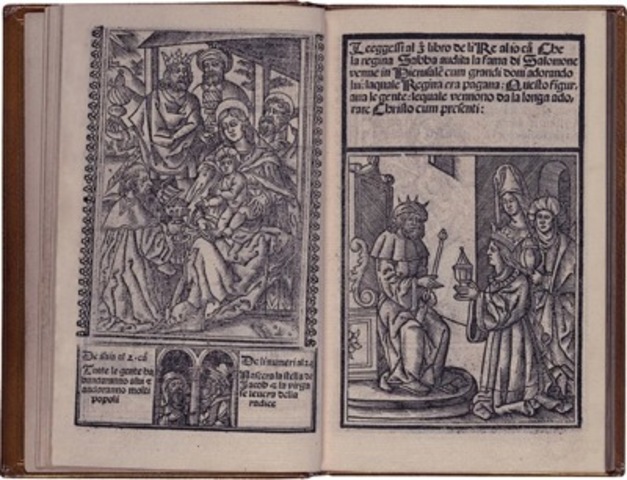 De
Tute le gente ha
andoranno molti
popoli
De li numeri al 24
Nascera la stella de
Jacob & la virga
se levera della
radice
Leeggesi al libro de li Re al io cā Che
la regina Sabba audita la fama di Salomone
venne in Hierusalē cum grandi doni adorando
lui: laquale Regina era pagana: Questo figur,
ava le gente: lequale vennono da la longa ado,
rare Christo cum presenti: